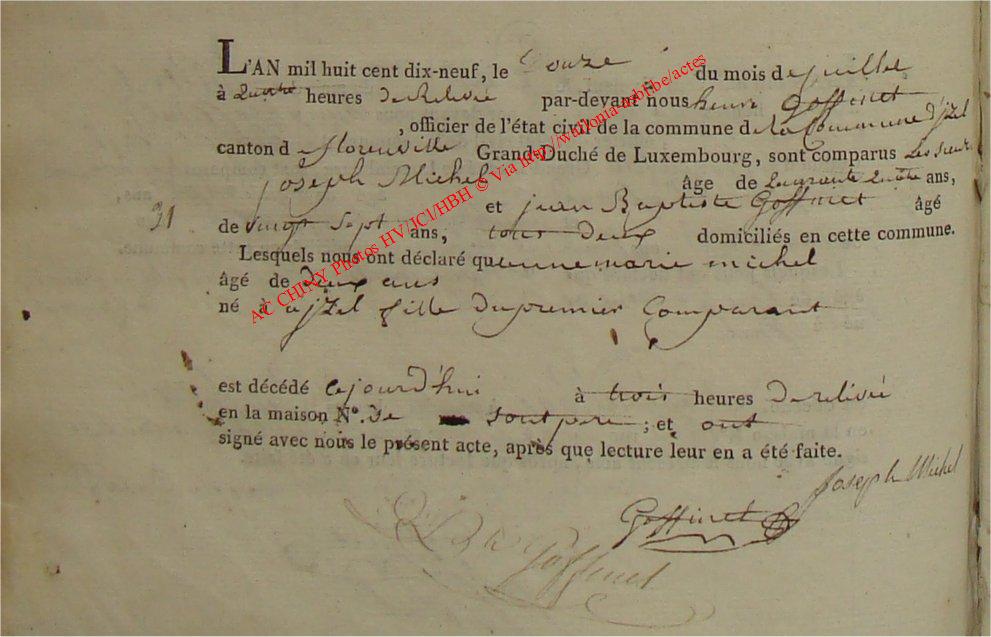 L'AN mil huit cent dix-neuf, le douze du mois de juillet
à quatre heures de Relevée par-devant nous henri Goffinet
, officier de l'état civil de la commune de la Commune d'jzel
canton de florenville Grand-Duché de Luxembourg, sont comparus Les sieur
joseph Michel âge de quarante quatre ans,
31
et jean Baptiste Goffinet âgé
de vingt sept ans, tous deux domiciliés en cette commune.
Lesquels nous ont déclaré qu anne marie michel
âgé de deux ans
né à ajzel fille du premier Comparant
est décédé cejourd'hui à trois heures de relevée
en la maison N°. de sont pere ; et ont
signé avec nous le présent acte, après que lecture leur en a été faite.
Joseph Michel
Goffinet
Goffinet
AC CHINY Photos HV/JCl/HBH © Via http://wallonia-asbl.be/actes